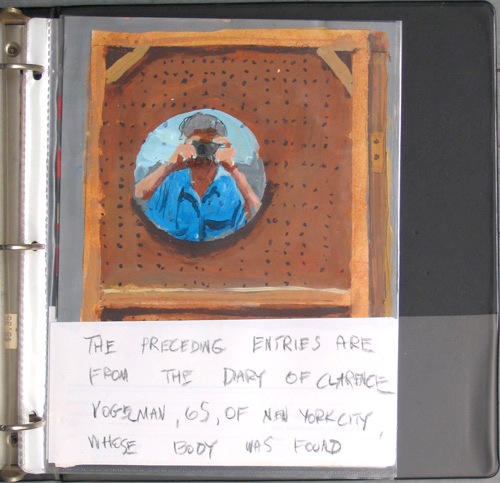 THE PRECEDING ENTRIES ARE
FROM THE DIARY OF CLARENCE
VOGELMAN, 65, OF NEW YORK CITY,
WHOSE BODY WAS FOUND